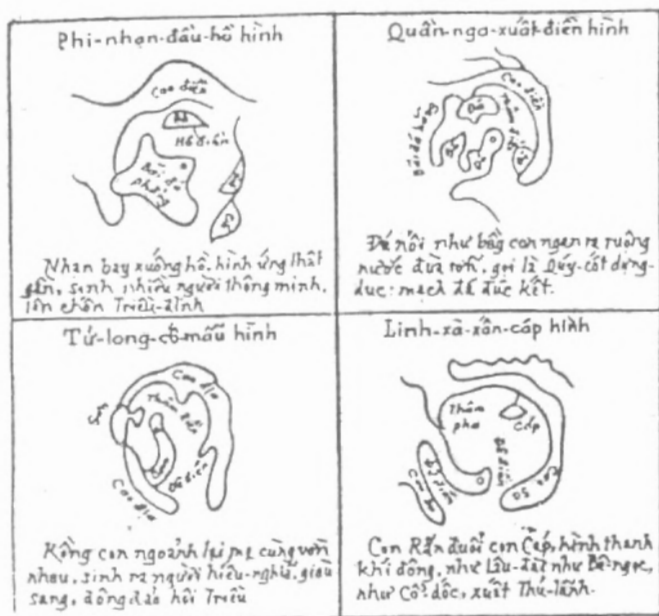 Phi-nhạn-đầu-hồ hình
Cao điền
Hồ điền
Bãi đá
phẳng
Nhạn bay xuống hồ, hình ứng thật
gần, sinh nhiều người thông minh,
lên chốn Triều-đình
Quần-nga-xuất-điền hình
Cao điền
Đá
Đá nổi như bầy con ngan ra ruộng
nước đùa rỡn, gọi là Quý-cốt dựng-
dục: mạch đá đúc kết.
Tử-long-cố-mẫu hình
Cao địa
Thâm điền
Đê điền
Cao địa
Rồng con ngoảnh lại mẹ cùng vờn
nhau, sinh ra người hiếu-nghĩa, giàu
sang, đông đảo hồi Triều
Linh-xà-xần-cáp hình
Thâm
pha
Cáp
Đê điền
Con Rắn đuổi con Cáp, hình thanh
khí động, như Lâu-đài như Bệ-ngọc,
như Cổ-dốc, xuất Thủ-lãnh.